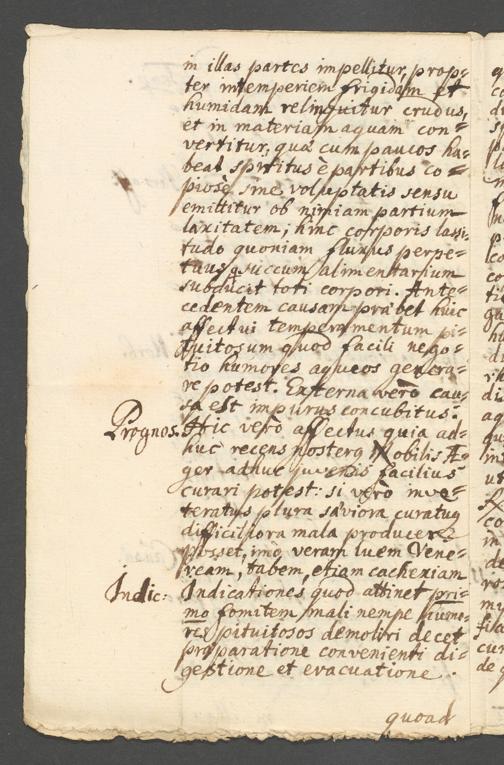 in illas partes impellitur, prop=
ter intemperiem frigidam et
humidam relinquitur crudus,
et in materiam aquam con=
vertitur, quæ cum paucos ha=
beat spiritus è partibus co=
piosè sine voluptatis sensu
emittitur ob nimiam partium
laxitatem, hinc corporis lassi=
tudo quoniam fluxus perpe=
tuus succum alimentarium
subducit toti corpori. Ante=
cedentem causam præbet huic
affectui temperamentum pi=
tuitosum quod facili nego=
tio humores aqueos genera=
re potest. Externa verò cau=
sa est impurus concubitus.
Prognos: Hic verò affectus quia ad=
huc recens nosterq Nobilis Æ=
ger adhuc juvenis facilius
curari potest: si verò inve=
teratus plura sæviora curatuq
difficiliora mala producere
posset, imò veram luem Vene=
ream, tabem, etiam cachexiam
Indic: Indicationes quod attinet pri=
mo fomitem mali nempe humo=
res pituitosos demoliri decet
præparatione convenienti di=
gestione et evacuatione.
quoad